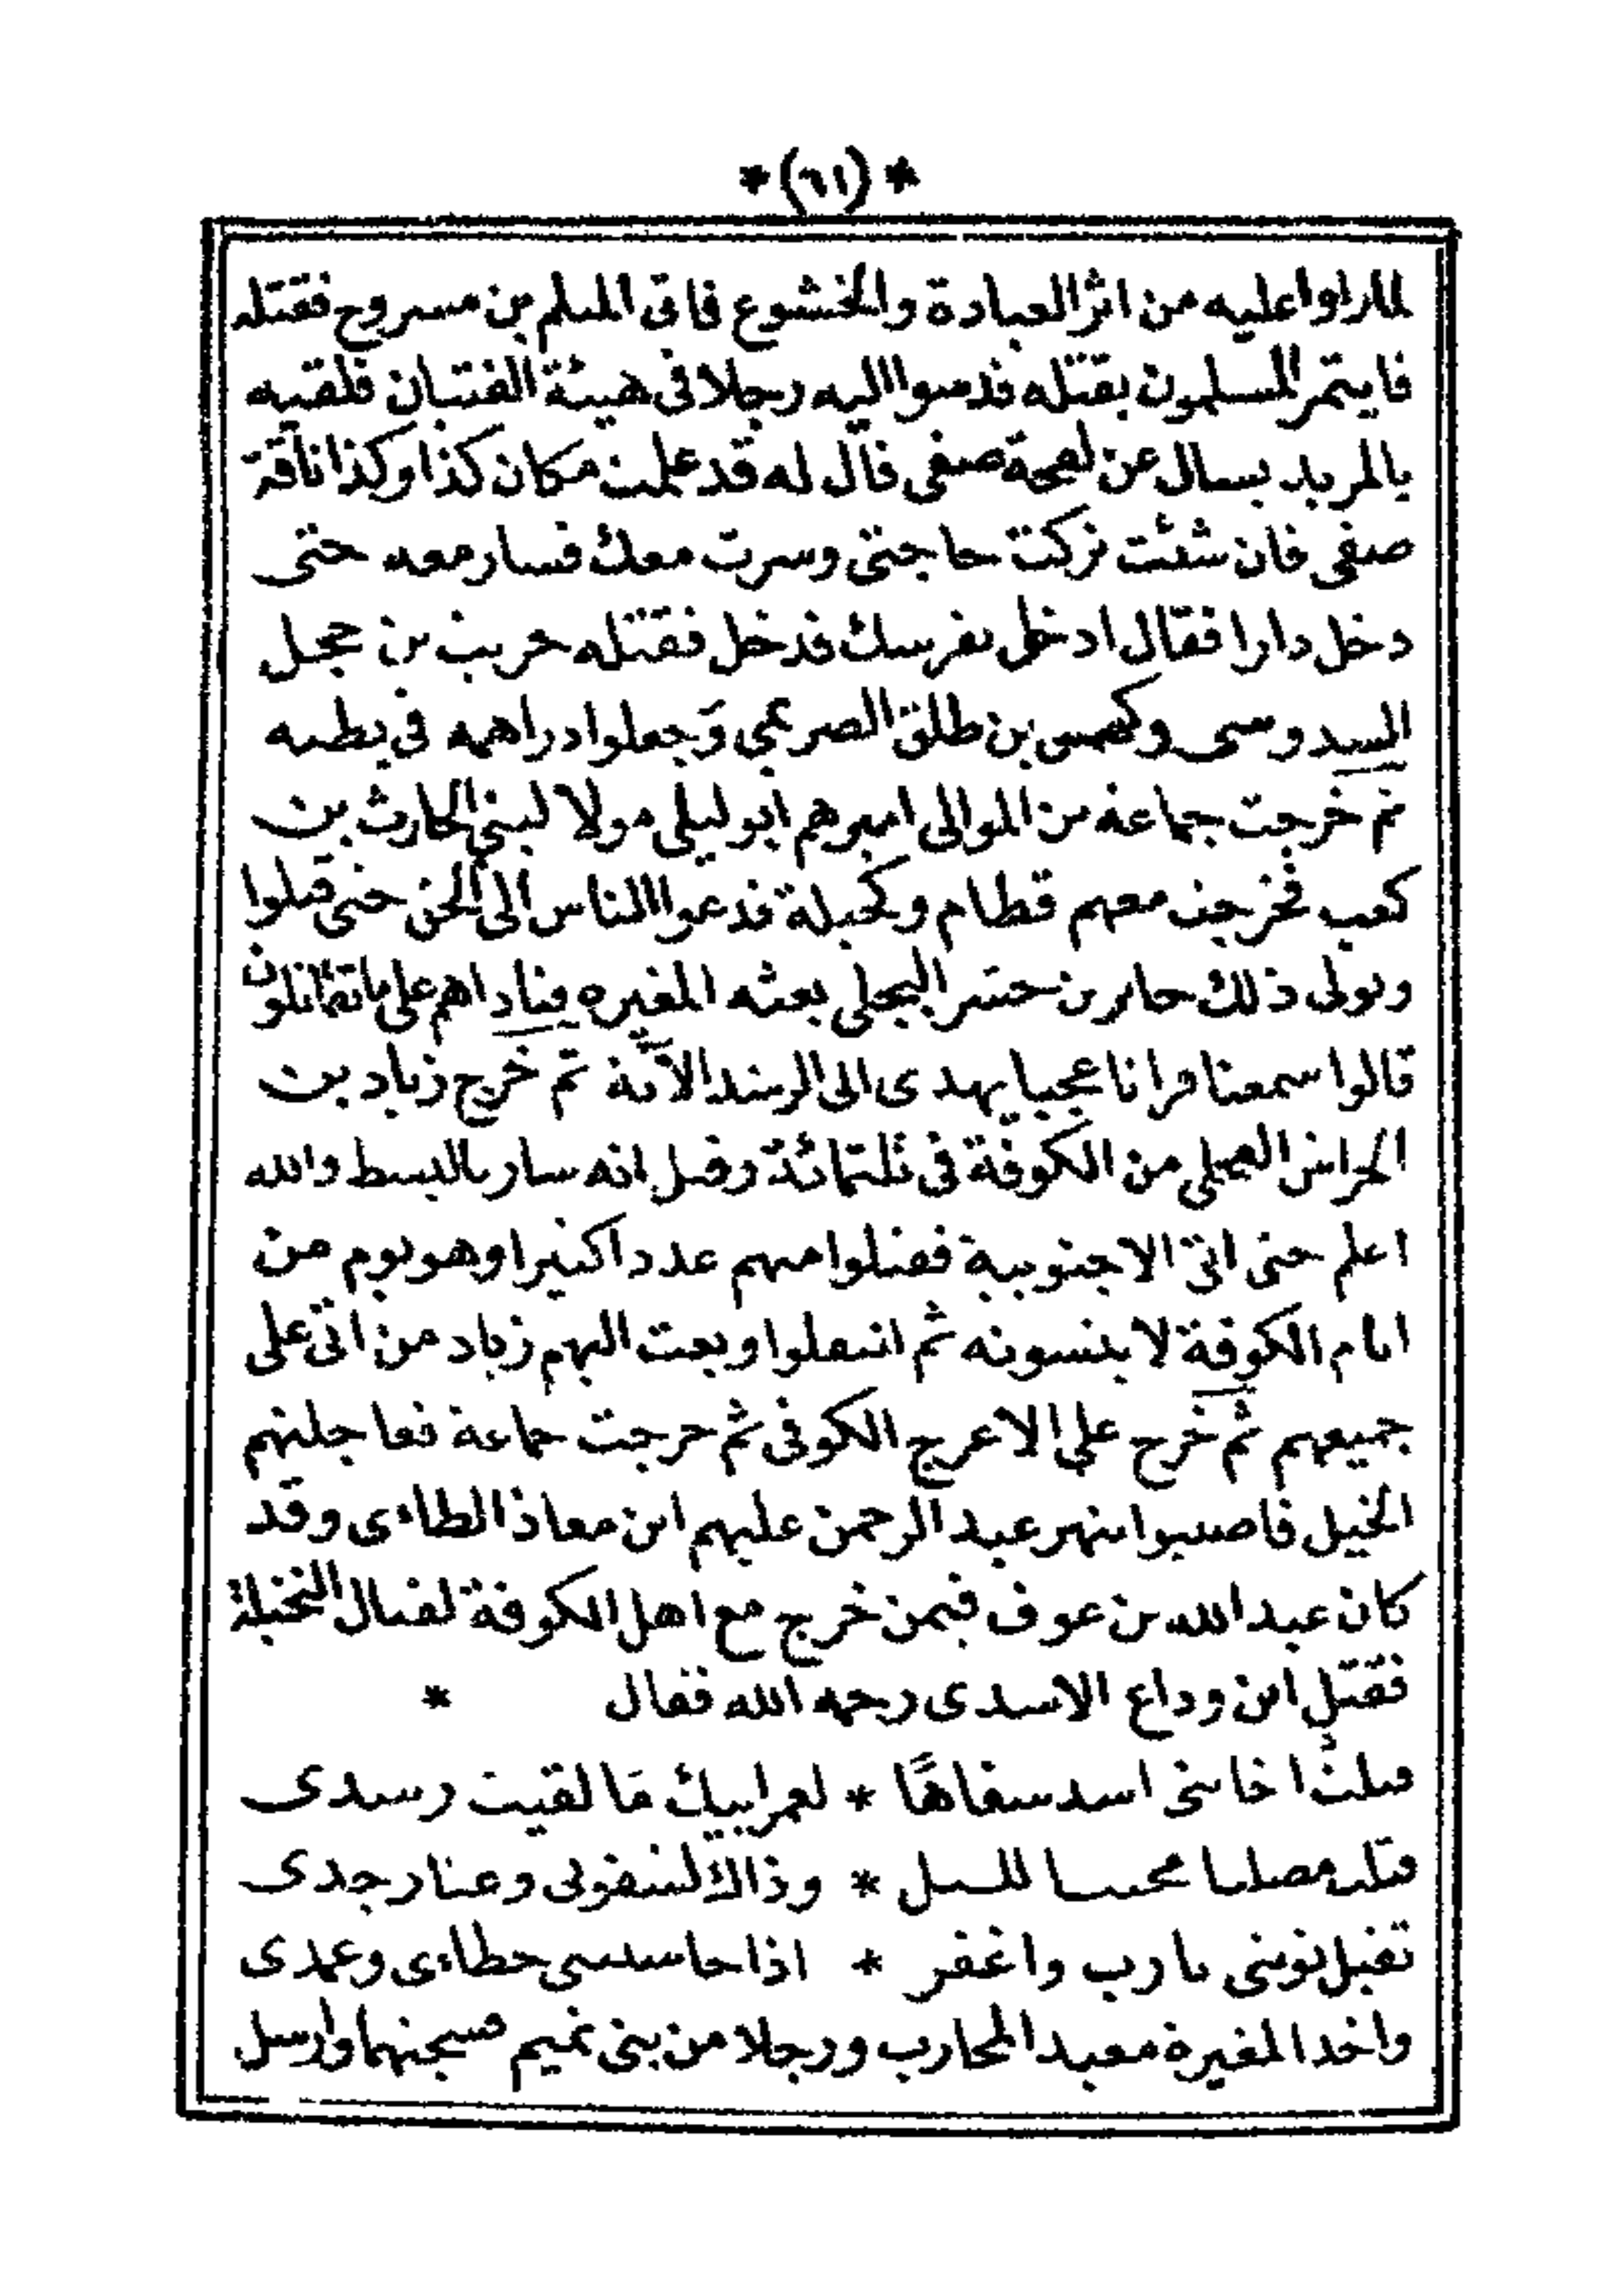 *(٦١)*
لما راوا عليه من اثر العبادة والخشوع فاتى المثلم بن مسروح فقتله
فايتمر المسلمون بقتله فدسوا اليه رجلا في هيئة الفتيان فلقيه
بالمربد يسال عن لقحة صفى قال له قد علمت مكان كذا وكذا ناقة
صفى فان شئت تركت حاجتى وسرت معك فسار معه حتى
دخل دارا فقال ادخل بفرسك فدخل فقتله حريث بن حجل
السدوسى وكهمس بن طلق الصريمي وَجعلوا دراهمه في بطنه
ثم خرجت جماعة من الموالى اميرهم ابو ليلى مولا لبني الحارث بن
كعب فخرجت معهم قطام وكحيلة فدعوا الناس الى الحق حتى قتلوا
وتولى ذلك جابر بن البجلي بعثه المغيره فناداهم على ما تقاتلون
قالوا سمعنا قرانا عجبا يهدى الى الرشد الآية ثم خرج زياد بن
الخراش العجلى من الكوفة في ثلثمائة وقيل انه سار بالبسط والله
اعلم حتى اتى الاجنوبية فقتلوا منهم عددا كثيرا وهو يوم من
ايام الكوفة لا ينسونه ثم انتقلوا وبعث اليهم زياد من اتى على
جميعهم ثم خرج علي الاعرج الكوفى ثم خرجت جماعة فعاجلتهم
الخيل فاصيبوا بنهر عبد الرحمن عليهم ابن معاذ الطاءى وقد
كان عبد الله بن عوف فيمن خرج مع اهل الكوفة لقتال النخيلة
فقتل ابن وداع الاسدى رحمه الله فقال *
قتلت اخا بنى اسد سفاهًا * لعمر ابيك مَا لقيت رشدى
قتلت مصليا محييا لليل * وذاك لشقوتى وعثار جدى
تقبل توبتى يا رب واغفر * اذا حاسبتنى خطاءى وعمدى
واخذ المغيرة معبد المحارب ورجلا من بنى تميم فسجنهما وارسل